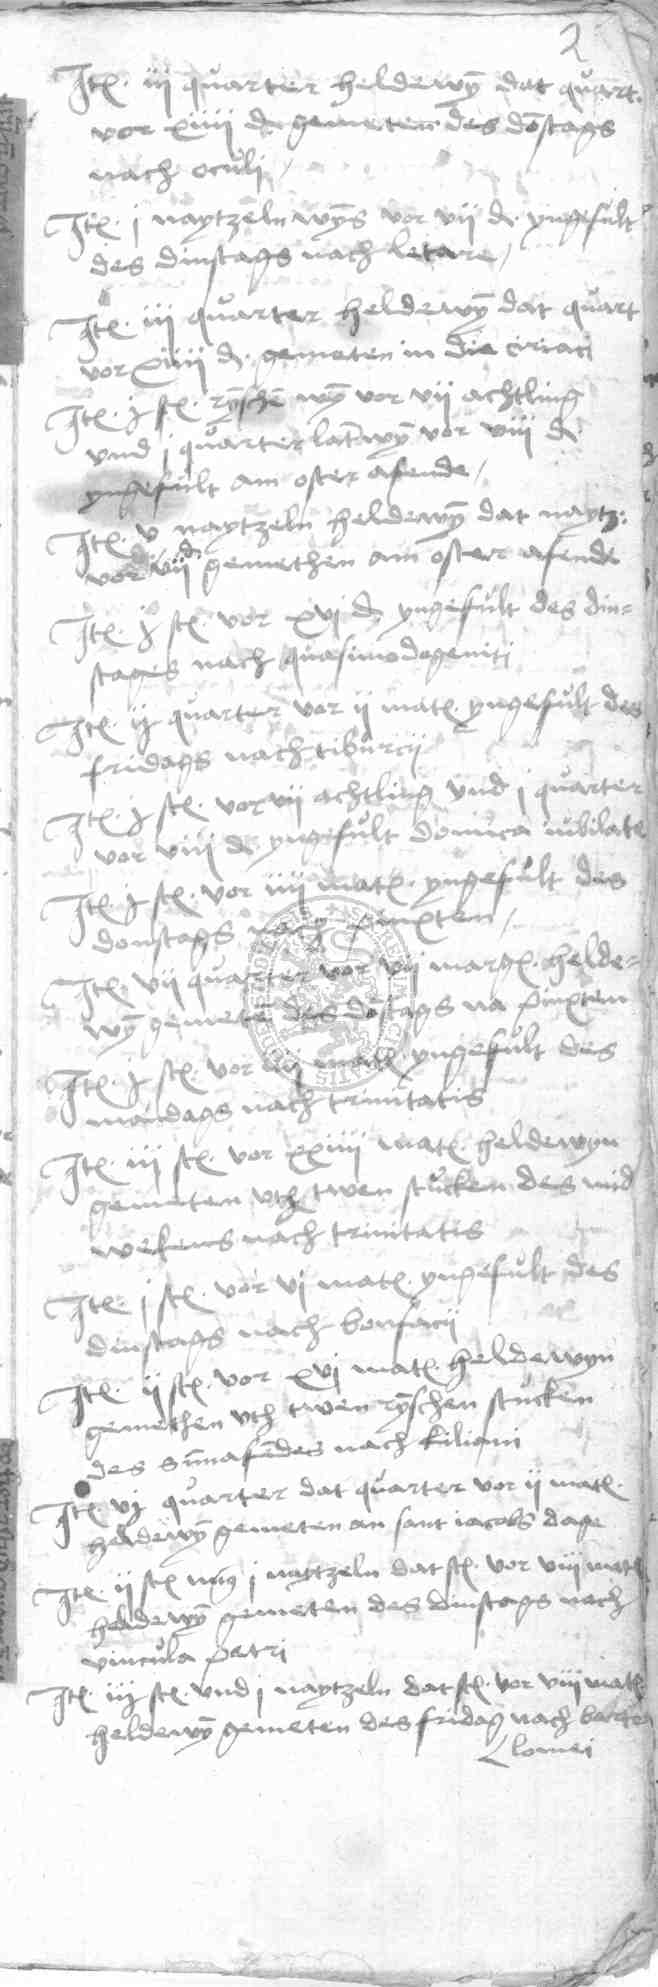 2
Itē. iij quarter heldewȳ dat quart.
vor xiiij d. gemeten des dōstags
nach oculi /
Itē. j naytzeln wyns vor vij d. yngefult
des dinstags nach letare /
Itē. iij quarter heldewȳ dat quart
vor xiiij d. gemeten in die ciriaci
Itē. j ſtꝭ. rȳschē wȳ vor vij achtling
vnd j quarter latwȳ vor viij d
yngefult am oster afende /
Itē. v naytzeln heldewȳ dat naytz:
vor vij d gemethen am oster afende
Itē. j ſtꝭ. vor xvj d yngefult des din=
stages nach quasimodogeniti
Itē. ij quarter vor ij matꝭ. yngefult des
fridags nach tiburcij
Itē. j ſtꝭ. vor vij achtling vnd j quarter
vor viij d yngefult dominca iubilate
Itē. j ſtꝭ. vor iiij matꝭ. yngefult des
donstags nach pinxten /
Itē. vij quarter vor vij margꝭ. helde=
wȳ gemetē des dōstags na pinxten
Itē. j ſtꝭ. vor matꝭ. yngefult des
mandags nach trinitatis
Itē. iij ſtꝭ. vor xxiiij matꝭ. heldewyn
gemeten vth twen stucken des mid
wekens nach trinitatis
Itē. j ſtꝭ. vor vj matꝭ. yngefult des
dinstags nach bonifacij
Itē. ij ſtꝭ. vor xvj matꝭ. heldewyn
gemethen vth twen rȳschen stucken
des sūnafendes nach kiliani
Itē vj quarter dat quarter vor ij matꝭ.
heldewȳ gemeten an sant iacobs dage
Itē. ij ſtꝭ j naytzeln dat ſtꝭ. vor viij matꝭ
heldewȳ gemeten des dinstags nach
vincula petri
Itē. iij ſtꝭ. vnd j naytzeln dat ſtꝭ. vor viij matꝭ
heldewȳ gemeten des fridag nach barto
lomei